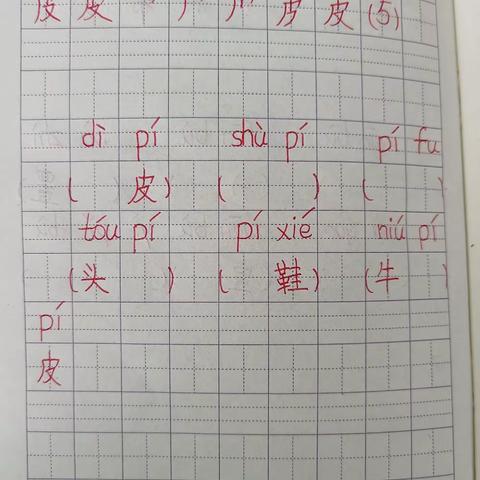 皮 皮 皮 (5)
dì pí shù pí pí fu
( 皮) ( ) ( )
tóu pí pí xié niú pí
(头 ) ( 鞋) (牛 )
pí
皮